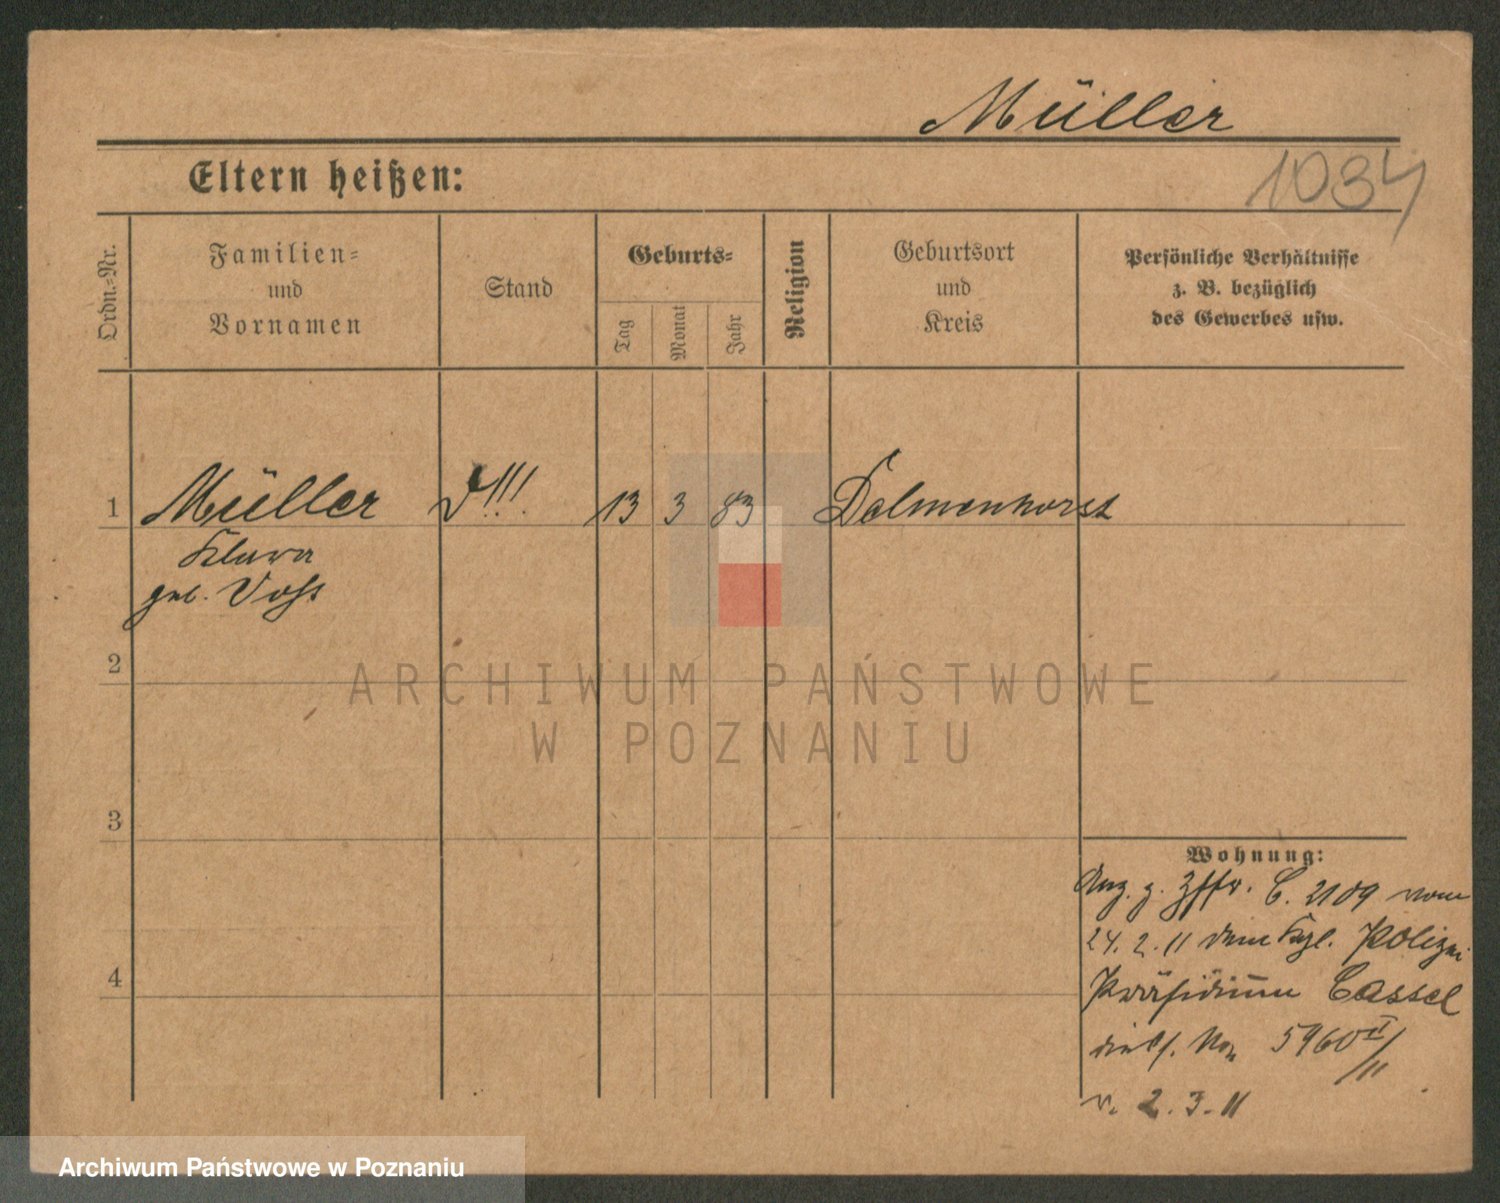 Müller
1034
Eltern heißen:
Ordn.-Nr.
Familien-
und
Vornamen
Stand
Geburts-
Tag
Monat
Jahr
Religion
Geburtsort
und
Kreis
Persönliche Verhältnisse
z. B. bezüglich
des Gewerbes usw.
1 Müller 13 3 83 Delmenhorst
Klara
geb. Voß
2
ARCHIWUM PAŃSTWOWE
W POZNANIU
3
4
Wohnung:
Anz. z. C. 2109 vom
24. 2. 11 dem Kgl. Polizei
Präsidium Cassel
5960 II/11
v. 2. 3. 11
Archiwum Państwowe w Poznaniu